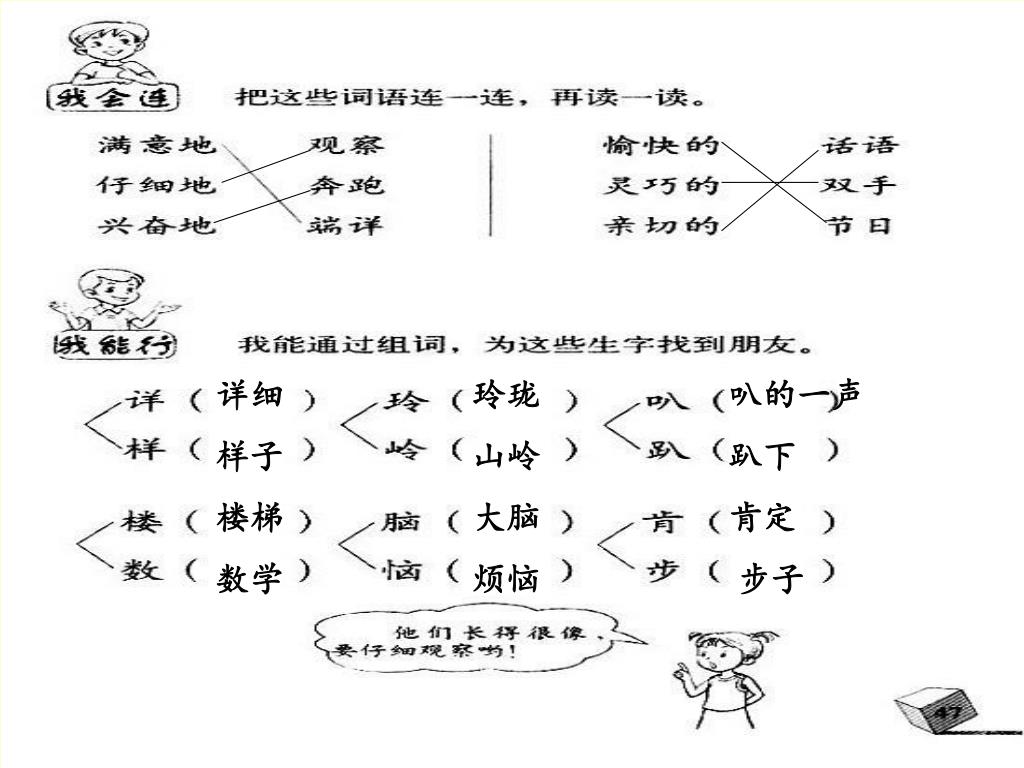 我会连 把这些词语连一连，再读一读。
满意地 观察 愉快的 话语
仔细地 奔跑 灵巧的 双手
兴奋地 端详 亲切的 节日
我能行 我能通过组词，为这些生字找到朋友。
详（详细） 玲（玲珑） 叭（叭的一声）
样（样子） 岭（山岭） 趴（趴下）
楼（楼梯） 脑（大脑） 肯（肯定）
数（数学） 恼（烦恼） 步（步子）
他们长得很像，
要仔细观察哟！
47